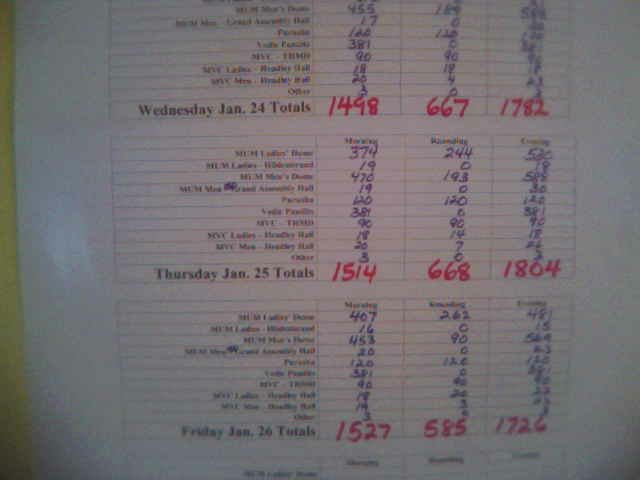 MUM Men's Dome 455 184
MUM Men - Grand Assembly Hall 17 0
Purusha 120 120
Vedic Pandits 381 0
MVC - TRMD 90 90
MVC Ladies - Headley Hall 18 18
MVC Men - Headley Hall 20 4
Other 3 0
Wednesday Jan. 24 Totals 1498 667 1782
Morning Rounding Evening
MUM Ladies' Dome 374 244 520
MUM Ladies - Hildenbrand 19 0 18
MUM Men's Dome 470 193
MUM Men Grand Assembly Hall 19 0 30
Purusha 120 120 120
Vedic Pandits 381 0 381
MVC - TRMD 90 90 90
MVC Ladies - Headley Hall 18 14 18
MVC Men - Headley Hall 20 7
Other 3 0
Thursday Jan. 25 Totals 1514 668 1804
Morning Rounding Evening
MUM Ladies' Dome 407 262 481
MUM Ladies - Hildenbrand 16 0 15
MUM Men's Dome 453 90
MUM Men Grand Assembly Hall 20 0 23
Purusha 120 120 120
Vedic Pandits 381 0 381
MVC - TRMD 90 90 90
MVC Ladies - Headley Hall 18 20
MVC Men - Headley Hall 19 3
Other 3 0
Friday Jan. 26 Totals 1527 585 1726
Morning Rounding
MUM Ladies' Dome